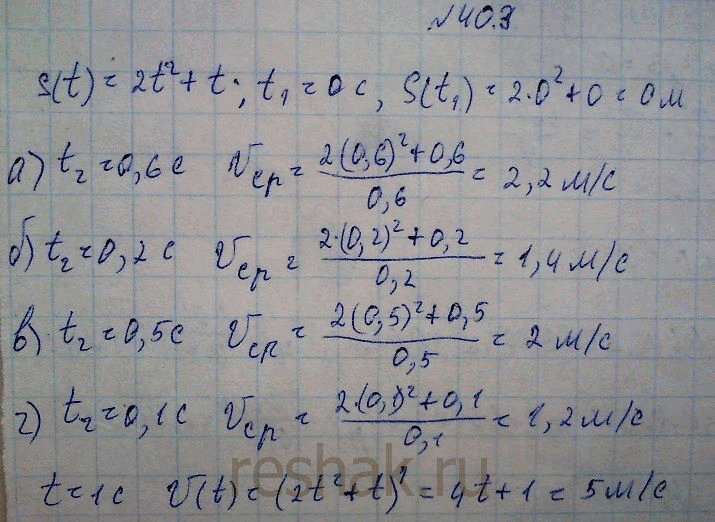 №40.3
S(t) = 2t² + t; t₁ = 0 c, S(t₁) = 2·0² + 0 = 0 м
а) t₂ = 0,6 c Vср = (2(0,6)² + 0,6)/0,6 = 2,2 м/с
б) t₂ = 0,2 c Vср = (2·(0,2)² + 0,2)/0,2 = 1,4 м/с
в) t₂ = 0,5 c Vср = (2(0,5)² + 0,5)/0,5 = 2 м/с
г) t₂ = 0,1 c Vср = (2·(0,1)² + 0,1)/0,1 = 1,2 м/с
reshak.ru
t = 1 c V(t) = (2t² + t)' = 4t + 1 = 5 м/с